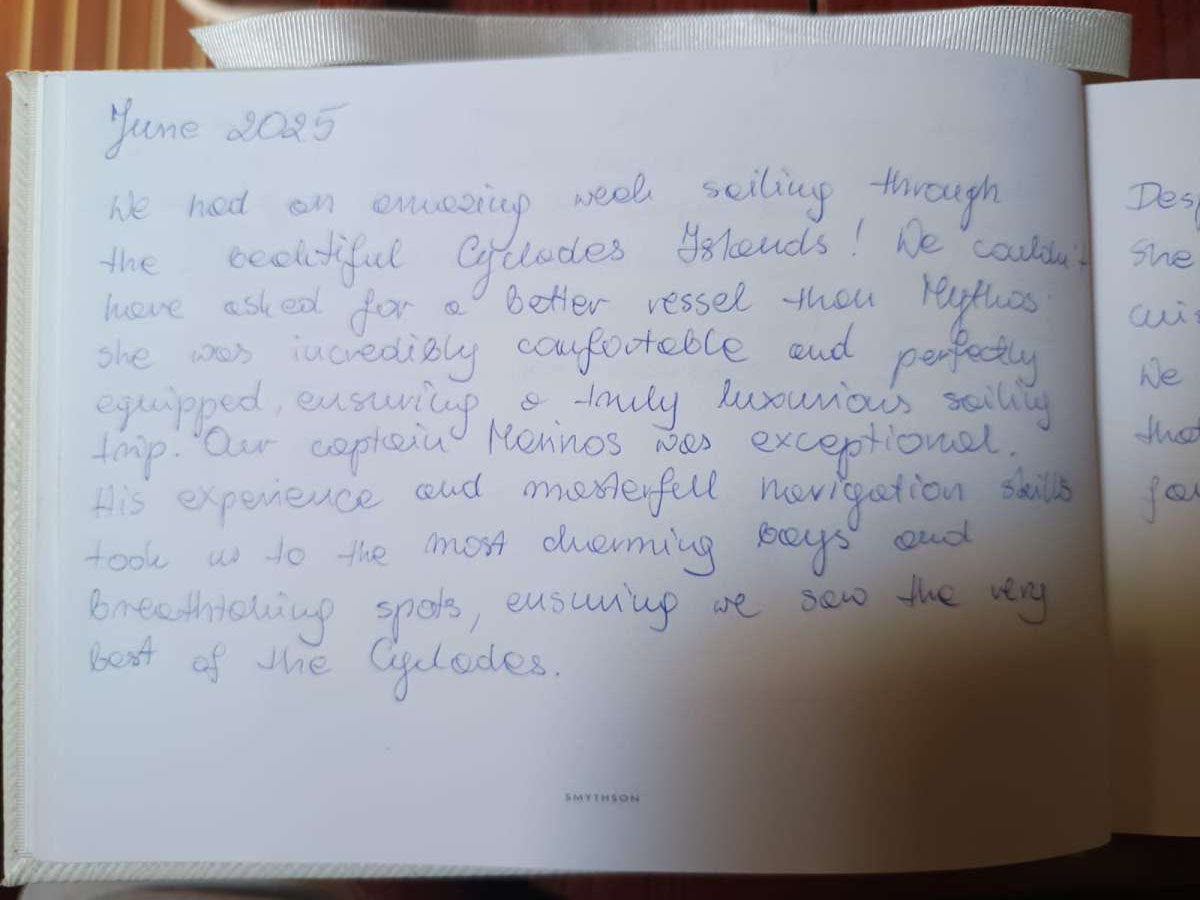 June 2025
We had an amazing week sailing through
the beautiful Cyclades Islands! We couldn't
have asked for a better vessel than Mythos.
she was incredibly comfortable and perfectly
equipped, ensuring a truly luxurious sailing
trip. Our captain Marinos was exceptional.
His experience and masterfull navigation skills
took us to the most charming bays and
breathtaking spots, ensuring we saw the very
best of the Cyclades.
SMYTHSON
She
We